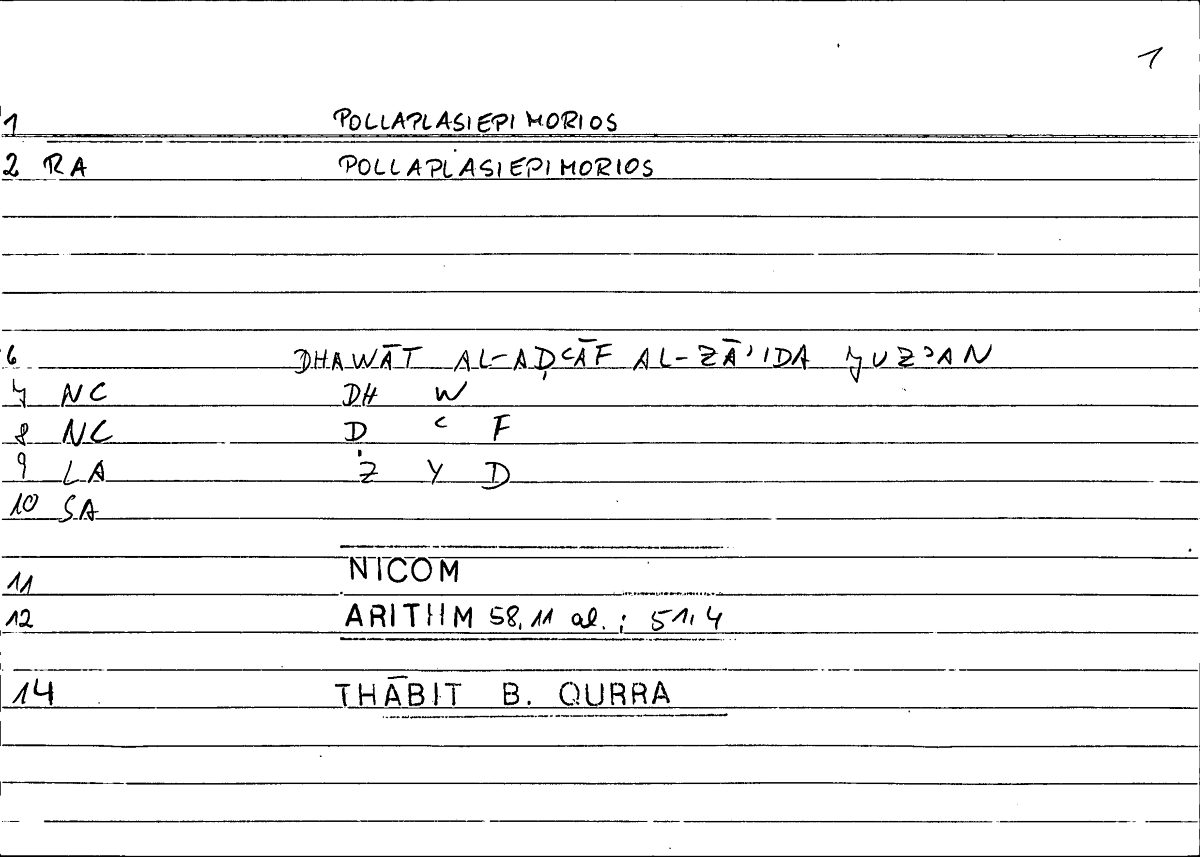 1
1 POLLAPLASIEPIMORIOS
2 RA POLLAPLASIEPIMORIOS
6 DHAWĀT AL-AḌʿĀF AL-ZĀʾIDA ǧUZʾAN
7 NC DH W
8 NC Ḍ ʿ F
9 LA Z Y D
10 SA
11 NICOM
12 ARITHM 58,11 al. ; 51,4
14 THĀBIT B. QURRA